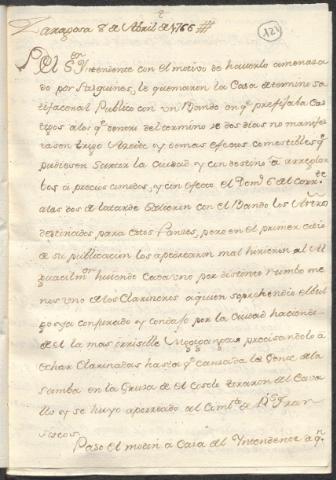 121
Zaragoza 8 de Abril de 1766
El Sr. Yntendente con el motivo de haverlo amenaza
do por Pasquines, le quemaren la Casa determino sa
tisfacer al Publico con un Bando en q.e prefijaba Cas
tigos a los q.e dentro del termino de dos dias no manifes
tasen trigo Azeite y demas efectos comestibles q.e
pudiesen surtir la Ciudad y con destino a arreglar
los a precios comodos, y con efecto el Dom.o 6 del corr.te
a las dos de la tarde salieron con el Bando los
destinados para estos Fines, pero en el primer citio
de su publicacion los apedrearon mal hirieron al Al
guacil m.or huiendo Cada uno por distinto rumbo me
nos uno de los Clarineros a quien soprehendio el bul
go ya conjurado y condujo por la Ciudad haciendo
de el la mas irrisible precisandolo a
echar Clarinadas hasta q.e cansada la Gente de la
en la Cruz de el Coso le tiraron del Cava
llo y se huyo aporreado al Comb.to de S.n Fran
cisco.
Paso el motin a Casa del Yntendente a q.n